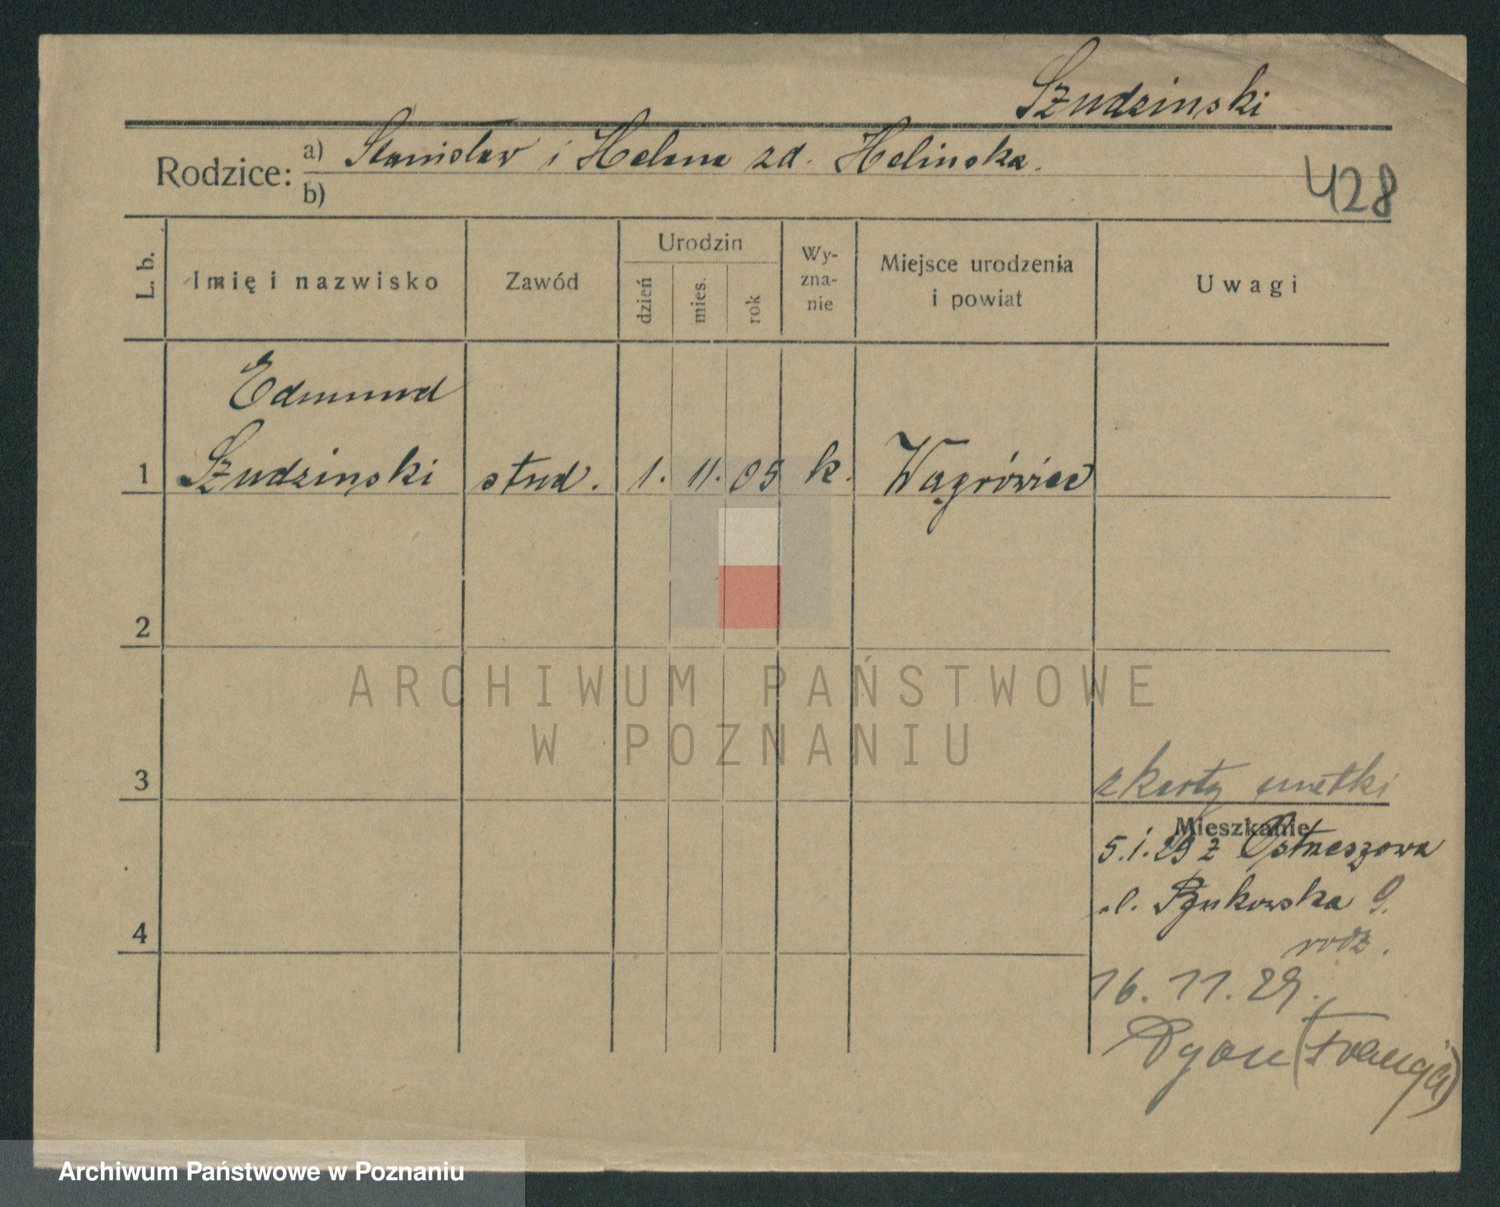 Szudzinski
Rodzice: a) Stanisław i Helena zd. Helinska.
b)
428
L. b.
Imię i nazwisko
Zawód
Urodzin
dzień
mies.
rok
Wy-
zna-
nie
Miejsce urodzenia
i powiat
Uwagi
Edmund
1 Szudzinski stud. 1. 11. 05 k. Wągrówiec
2
ARCHIWUM PAŃSTWOWE
W POZNANIU
3
z karty matki
Mieszkanie
5.1.29 z Ostrzeszowa
ul. Bukowska 9.
rodz.
4
16. 11. 29.
Dyon (Francja)
Archiwum Państwowe w Poznaniu